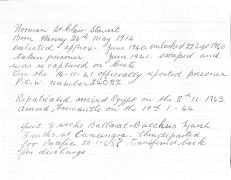 Norman St Clair Stewart
Born Harvey 26th May 1914
enlisted approx June 1940 embarked 22 Sept 1940
taken prisoner June 1941. escaped and
was recaptured on Crete
On the 14-11-41 officially reported prisoner
P.O.W. number 24087
Repatriated arrived Egypt on the 8th 11-1943.
arrived Fremantle on the 19th 1-44.
Spent 3 weeks Ballarat Bacchus Marsh
months at Then departed
for Pacific Transferred back
for discharge